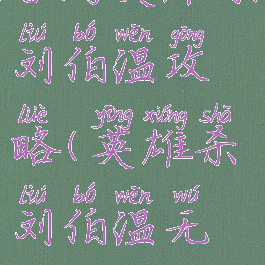 liú bó wēn gōng
刘伯温攻
lüè yīng xióng shā
略(英雄杀
liú bó wēn wú
刘伯温无